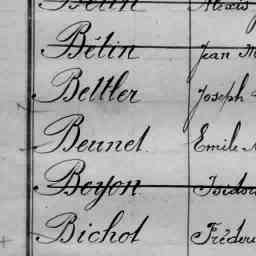 Bétin Jean M
Beltler Joseph
Beunet Emile
Beyon Isidor
Bichot Fréder